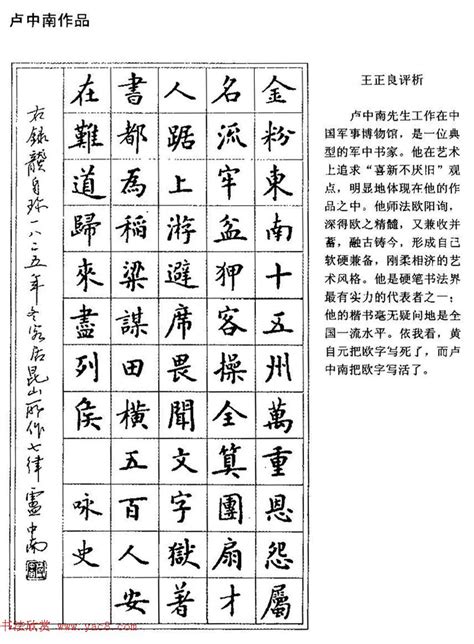 卢中南作品
金粉東南十五州萬重恩怨屬
名流牢盆狎客操全算團扇才
人踞上游避席畏聞文字獄著
書都為稻粱謀田橫五百人安
在難道歸來盡列侯 咏史
右錄龔自珍一八二五年冬客居昆山所作七律 盧中南
王正良评析
卢中南先生工作在中
国军事博物馆，是一位典
型的军中书家。他在艺术
上追求“喜新不厌旧”观
点，明显地体现在他的作
品之中。他师法欧阳询，
深得欧之精髓，又兼收并
蓄，融古铸今，形成自己
软硬兼备，刚柔相济的艺
术风格。他是硬笔书法界
最有实力的代表者之一；
他的楷书毫无疑问地是全
国一流水平。依我看，黄
自元把欧字写死了，而卢
中南把欧字写活了。
书法欣赏 www.yac8.com